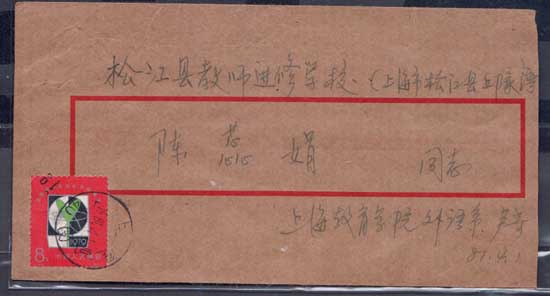 松江县教师进修学校.(上海市松江县
陈蕊娟 同志
上海教育学院外语系
81.4.1
8分 中国人民邮政